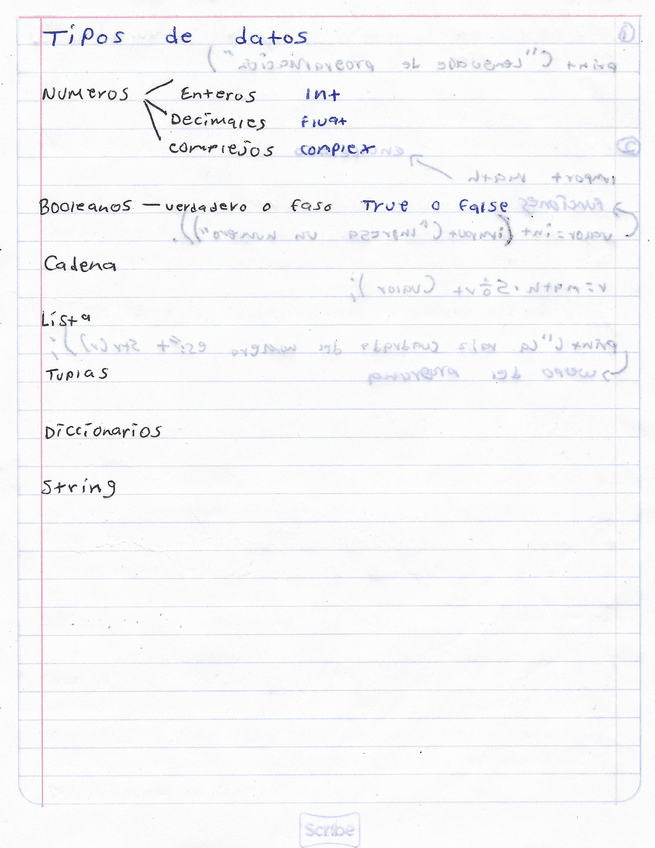 Tipos de datos
Numeros Enteros Int
Decimales Float
complejos complex
Booleanos — verdadero o faso True o False
Cadena
Lista
Tuplas
Diccionarios
String
Scribe